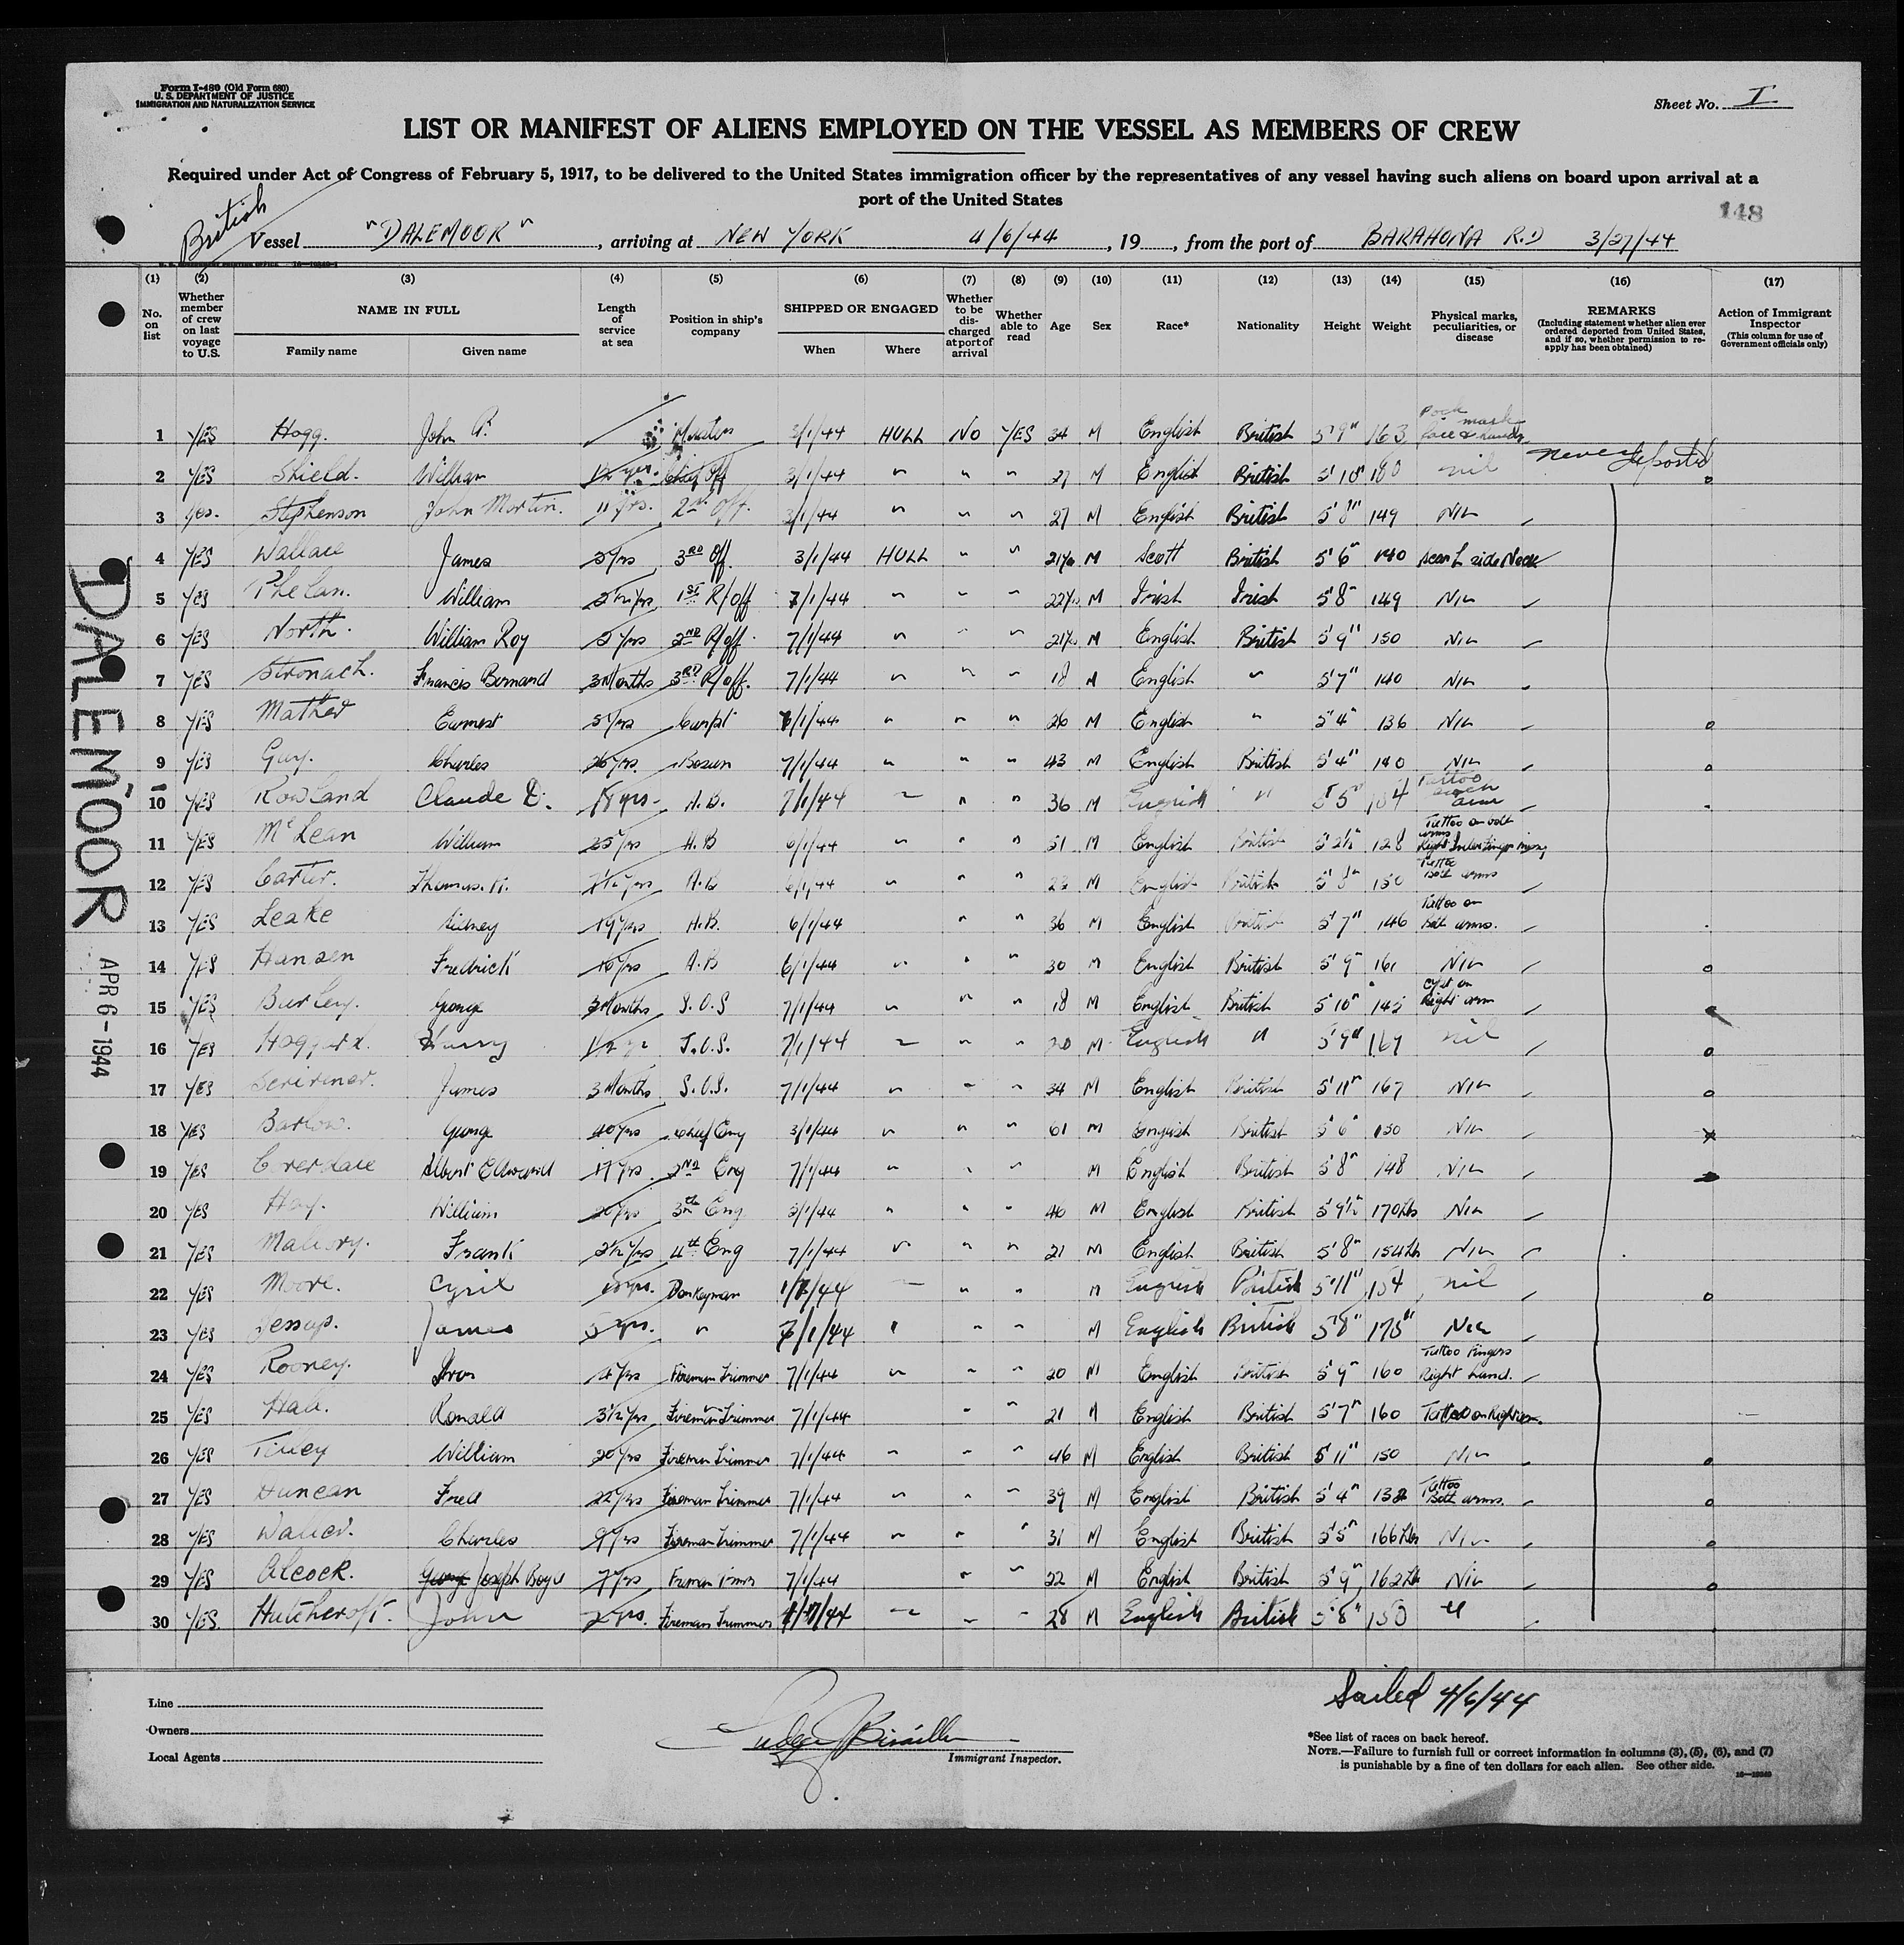 Form I-480 (Old Form 680)
U. S. DEPARTMENT OF JUSTICE
IMMIGRATION AND NATURALIZATION SERVICE
Sheet No. I
LIST OR MANIFEST OF ALIENS EMPLOYED ON THE VESSEL AS MEMBERS OF CREW
Required under Act of Congress of February 5, 1917, to be delivered to the United States immigration officer by the representatives of any vessel having such aliens on board upon arrival at a
port of the United States
148
British
Vessel "DALEMOOR", arriving at NEW YORK 4/6/44, 19, from the port of BARAHONA R.D 3/27/44
(1) (2) (3) (4) (5) (6) (7) (8) (9) (10) (11) (12) (13) (14) (15) (16) (17)
No. on list Whether member of crew on last voyage to U.S. NAME IN FULL Family name Given name Length of service at sea Position in ship's company SHIPPED OR ENGAGED When Where Whether to be discharged at port of arrival Whether able to read Age Sex Race* Nationality Height Weight Physical marks, peculiarities, or disease REMARKS (Including statement whether alien ever ordered deported from United States, and if so, whether permission to re-apply has been obtained) Action of Immigrant Inspector (This column for use of Government officials only)
1 YES Hogg. John Master 3/1/44 HULL NO YES 34 M English British 5'9" 163 Pock mark face & hands
2 YES Shield. William Chief Off 3/1/44 " " " 27 M English British 5'10" 180 nil never deported
3 yes. Stephenson John Martin. 11 yrs. 2nd Off. 3/1/44 " " " 27 M English British 5'8" 149 NIL
4 YES Wallace James 5 yrs 3RD Off. 3/1/44 HULL " " M Scott British 5'6" 140 scar L side Neck
5 YES Phelan. William 2 1/2 yrs 1ST R/off 7/1/44 " " " M Irish Irish 5'8" 149 NIL
6 YES North. William Roy 2ND R/off. 7/1/44 " " " M English British 5'9" 150 NIL
7 YES Stronach. Francis Bernard 3 Months 3RD R/off. 7/1/44 " " " 18 M English " 5'7" 140 NIL
8 YES Mather Earnest 5 yrs Carpt 7/1/44 " " " 26 M English " 5'4" 136 NIL
9 YES Guy. Charles 26 yrs. Bosun 7/1/44 " " " 43 M English British 5'4" 140 NIL
10 YES Rowland Claude D. 18 yrs. A.B. 7/1/44 " " " 36 M English " 5'5" Tattoo each arm
11 YES McLean William 25 yrs A.B 6/1/44 " " " 51 M English British 5'2½" 128 Tattoo on both arms
12 YES Carter. Thomas. A.B 6/1/44 " " " M English British 150 Tattoo Both arms
13 YES Leake Sidney 19 yrs A.B. 6/1/44 " " 36 M English British 5'7" 146 Tattoo on Both arms.
14 YES Hansen Fredrick A.B 6/1/44 " " " 30 M English British 5'9" 161 NIL
15 YES Burley. George 3 Months S.O.S 7/1/44 " " " 18 M English British 5'10" Right arm
16 YES Harry J.O.S. 7/1/44 " " " 20 M English " 5'9" nil
17 YES Scrivener. James 3 Months S.O.S. 7/1/44 " " " 34 M English British 5'11" 167 NIL
18 YES Barlow. George 40 yrs Chief Eng 3/1/44 " " " 61 M English British 5'6" 150 NIL
19 YES Coverdale Albert Edward 17 yrs. 2ND Eng 7/1/44 " " " M English British 5'8" 148 NIL
20 YES Hay. William 3rd Eng 3/1/44 " " " 46 M English British 5'9½" 170 Lbs NIL
21 YES Mallory. Frank 2½ yrs 4th Eng 7/1/44 " " " 21 M English British 5'8" 154 Lb NIL
22 YES Moore. Cyril Donkeyman " " " M English British 5'11" 154 nil
23 YES Jessop. James 5 yrs. " 7/1/44 " " " M English British 5'8" 175 Nil
24 YES Rooney. 4 yrs Fireman Trimmer 7/1/44 " " " 20 M English British 5'9" 160 Tattoo Fingers Right hand.
25 YES Hall. Ronald 3½ yrs Fireman Trimmer 7/1/44 " " 21 M English British 5'7" 160 Tattoo on Right arm
26 YES Tilley William 20 yrs Fireman Trimmer 7/1/44 " " " 46 M English British 5'11" 150 NIL
27 YES Duncan Fred 22 yrs Fireman Trimmer 7/1/44 " " " 39 M English British 5'4" 132 Tattoo Both arms.
28 YES Charles 9 yrs Fireman Trimmer 7/1/44 " " " 31 M English British 5'5" 166 Lbs NIL
29 YES Alcock. George Joseph 7 yrs 7/1/44 " " 22 M English British 5'9" 162 Lb NIL
30 YES. Hutchcroft. John 2 yrs. Fireman Trimmer " " " 28 M English British 5'8" 150 "
DALEMOOR
APR 6-1944
Sailed 4/6/44
Line
Owners
Local Agents
Immigrant Inspector.
*See list of races on back hereof.
NOTE.—Failure to furnish full or correct information in columns (3), (5), (6), and (7)
is punishable by a fine of ten dollars for each alien. See other side.